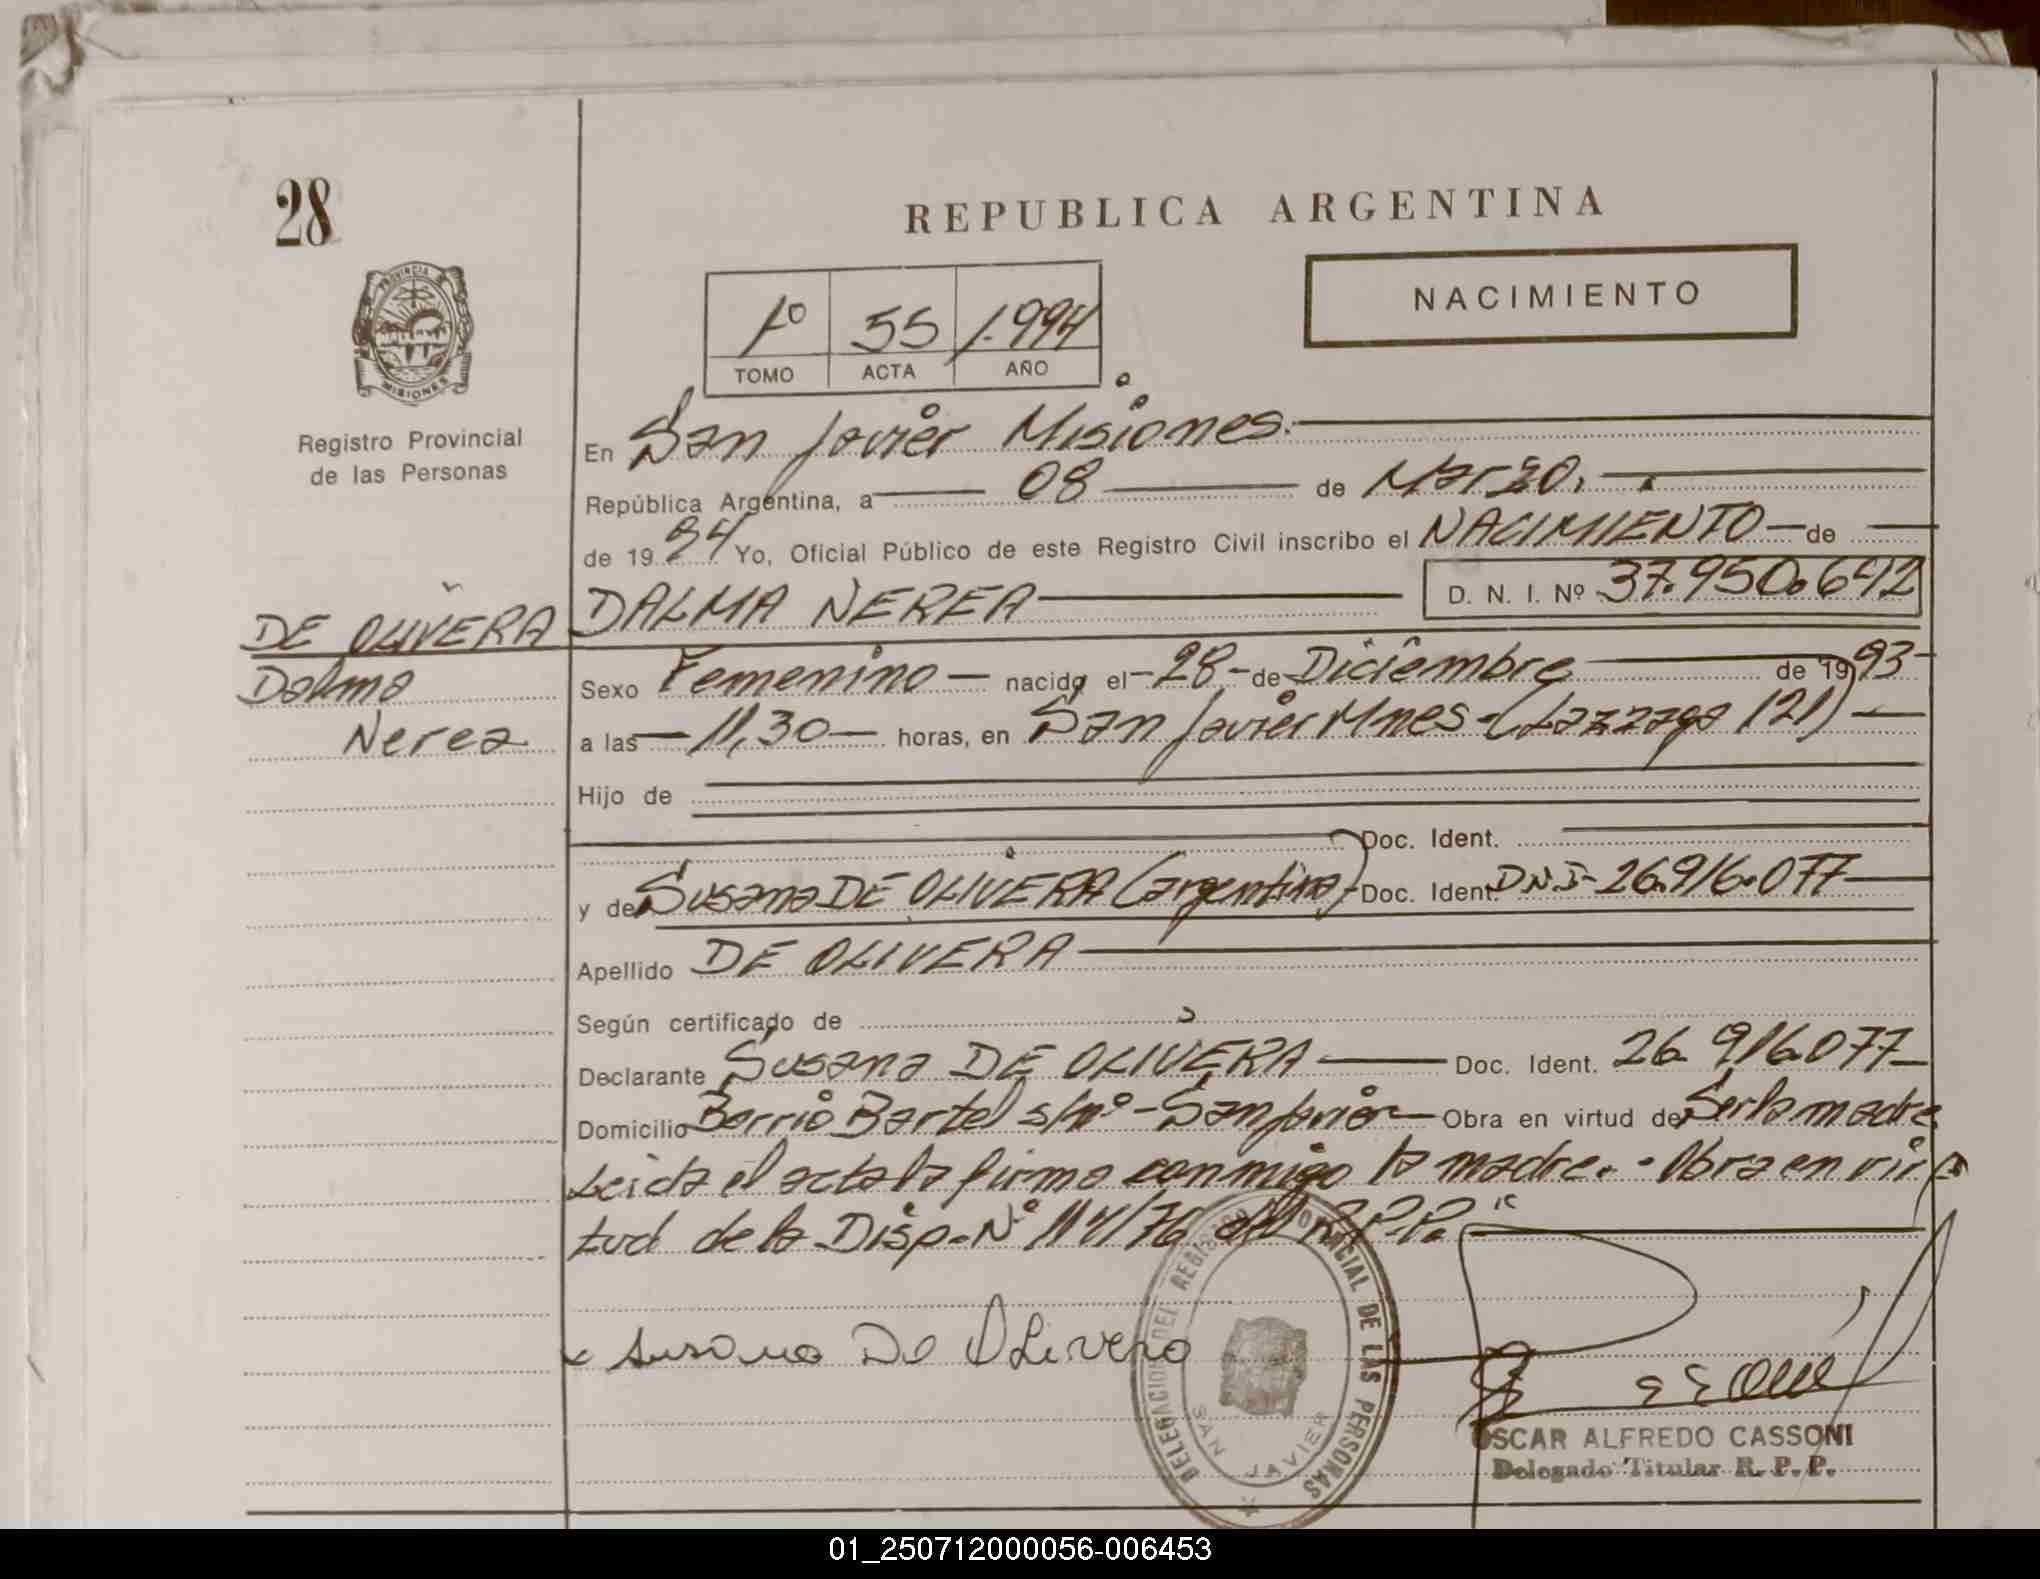 28
REPUBLICA ARGENTINA
NACIMIENTO
1º 55 1.994
TOMO ACTA AÑO
PROVINCIA DE MISIONES
Registro Provincial
de las Personas
En San Javier Misiones.
República Argentina, a 08 de Marzo.
de 19 94 Yo, Oficial Público de este Registro Civil inscribo el NACIMIENTO de
DALMA NEREA D. N. I. Nº 37.950.692
DE OLIVERA
Dalma
Nerea
Sexo Femenino nacido el 28 de Diciembre de 19 93
a las 11,30 horas, en San Javier Mnes-(Lazzaga 121)
Hijo de
Doc. Ident.
y de Susana DE OLIVERA (argentina) Doc. Ident. D.N.I- 26.916.077
Apellido DE OLIVERA
Según certificado de
Declarante Susana DE OLIVERA Doc. Ident. 26.916.077
Domicilio Barrio Bartel s/nº - San Javier Obra en virtud de Ser la madre
Leida el acta la firma conmigo la madre. - Obra en vir
tud de la Disp. Nº 114/76 del R.P.P.
x Susana De OLivera
DELEGACION DEL REGISTRO PROVINCIAL DE LAS PERSONAS
SAN JAVIER
OSCAR ALFREDO CASSONI
Delegado Titular R. P. P.
01_250712000056-006453